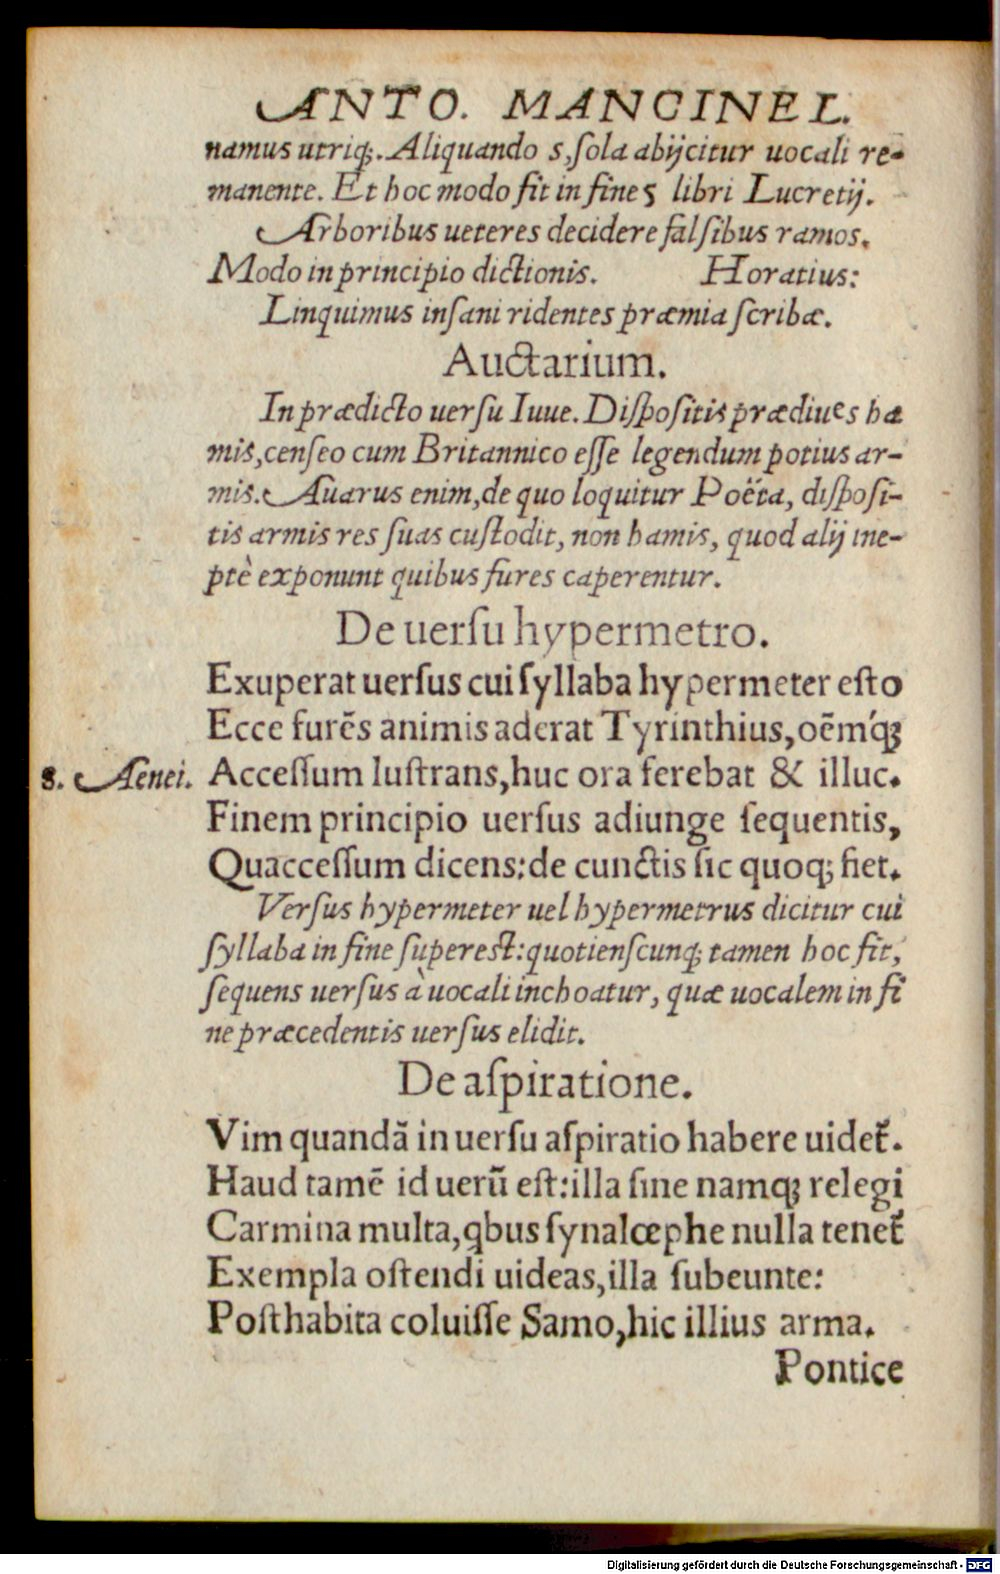 ANTO. MANCINEL.
namus utriq;. Aliquando s, ſola abijcitur uocali re-
manente. Et hoc modo fit in fine 5 libri Lucretij.
Arboribus ueteres decidere falſibus ramos.
Modo in principio dictionis. Horatius:
Linquimus inſani ridentes præmia ſcribæ.
Auctarium.
In prædicto uerſu Iuue. Diſpoſitis prædiues ha
mis, cenſeo cum Britannico eſſe legendum potius ar-
mis. Auarus enim, de quo loquitur Poëta, diſpoſi-
tis armis res ſuas cuſtodit, non hamis, quod alij ine-
ptè exponunt quibus fures caperentur.
De uerſu hypermetro.
Exuperat uerſus cui ſyllaba hypermeter eſto
Ecce furēs animis aderat Tyrinthius, oēmq́;
8. Aenei. Acceſſum luſtrans, huc ora ferebat & illuc.
Finem principio uerſus adiunge ſequentis,
Quacceſſum dicens: de cunctis ſic quoq; fiet.
Verſus hypermeter uel hypermetrus dicitur cui
ſyllaba in fine ſupereſt: quotienſcunq; tamen hoc fit,
ſequens uerſus à uocali inchoatur, quæ uocalem in fi
ne præcedentis uerſus elidit.
De aſpiratione.
Vim quandā in uerſu aſpiratio habere uidet᷑.
Haud tamē id uerū eſt: illa ſine namq; relegi
Carmina multa, qbus ſynalœphe nulla tenet᷑
Exempla oſtendi uideas, illa ſubeunte:
Poſthabita coluiſſe Samo, hic illius arma.
Pontice
Digitalisierung gefördert durch die Deutsche Forschungsgemeinschaft - DFG